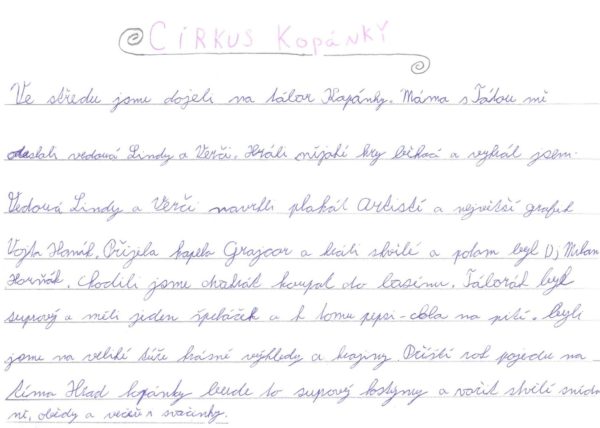 CIRKUS KOPÁNKY
Ve středu jsme dojeli na tábor Kopánky. Máma s Tátou mě
vedoucí Lindy a Verči. Hráli nějaké hry běhací a vyhrál jsem.
Vedoucí Lindy a Verči navrhli plakát Artistí a největší grafik
Vojta Hanák. Přijela kapela Grajcar a hráli skvělé a potom byl Dj Milan
Horňák. Chodili jsme dvakrát koupat do basénu. Táborák byl
suprový a měli jeden špekáček a k tomu pepsi-cola na pití. Byli
jsme na veliké túře krásné výhledy a krajiny. Příští rok pojedu na
Hrad kopánky bude to suprový kostýmy a vařit skvělí snída
ně, obědy a večeře svačinky.